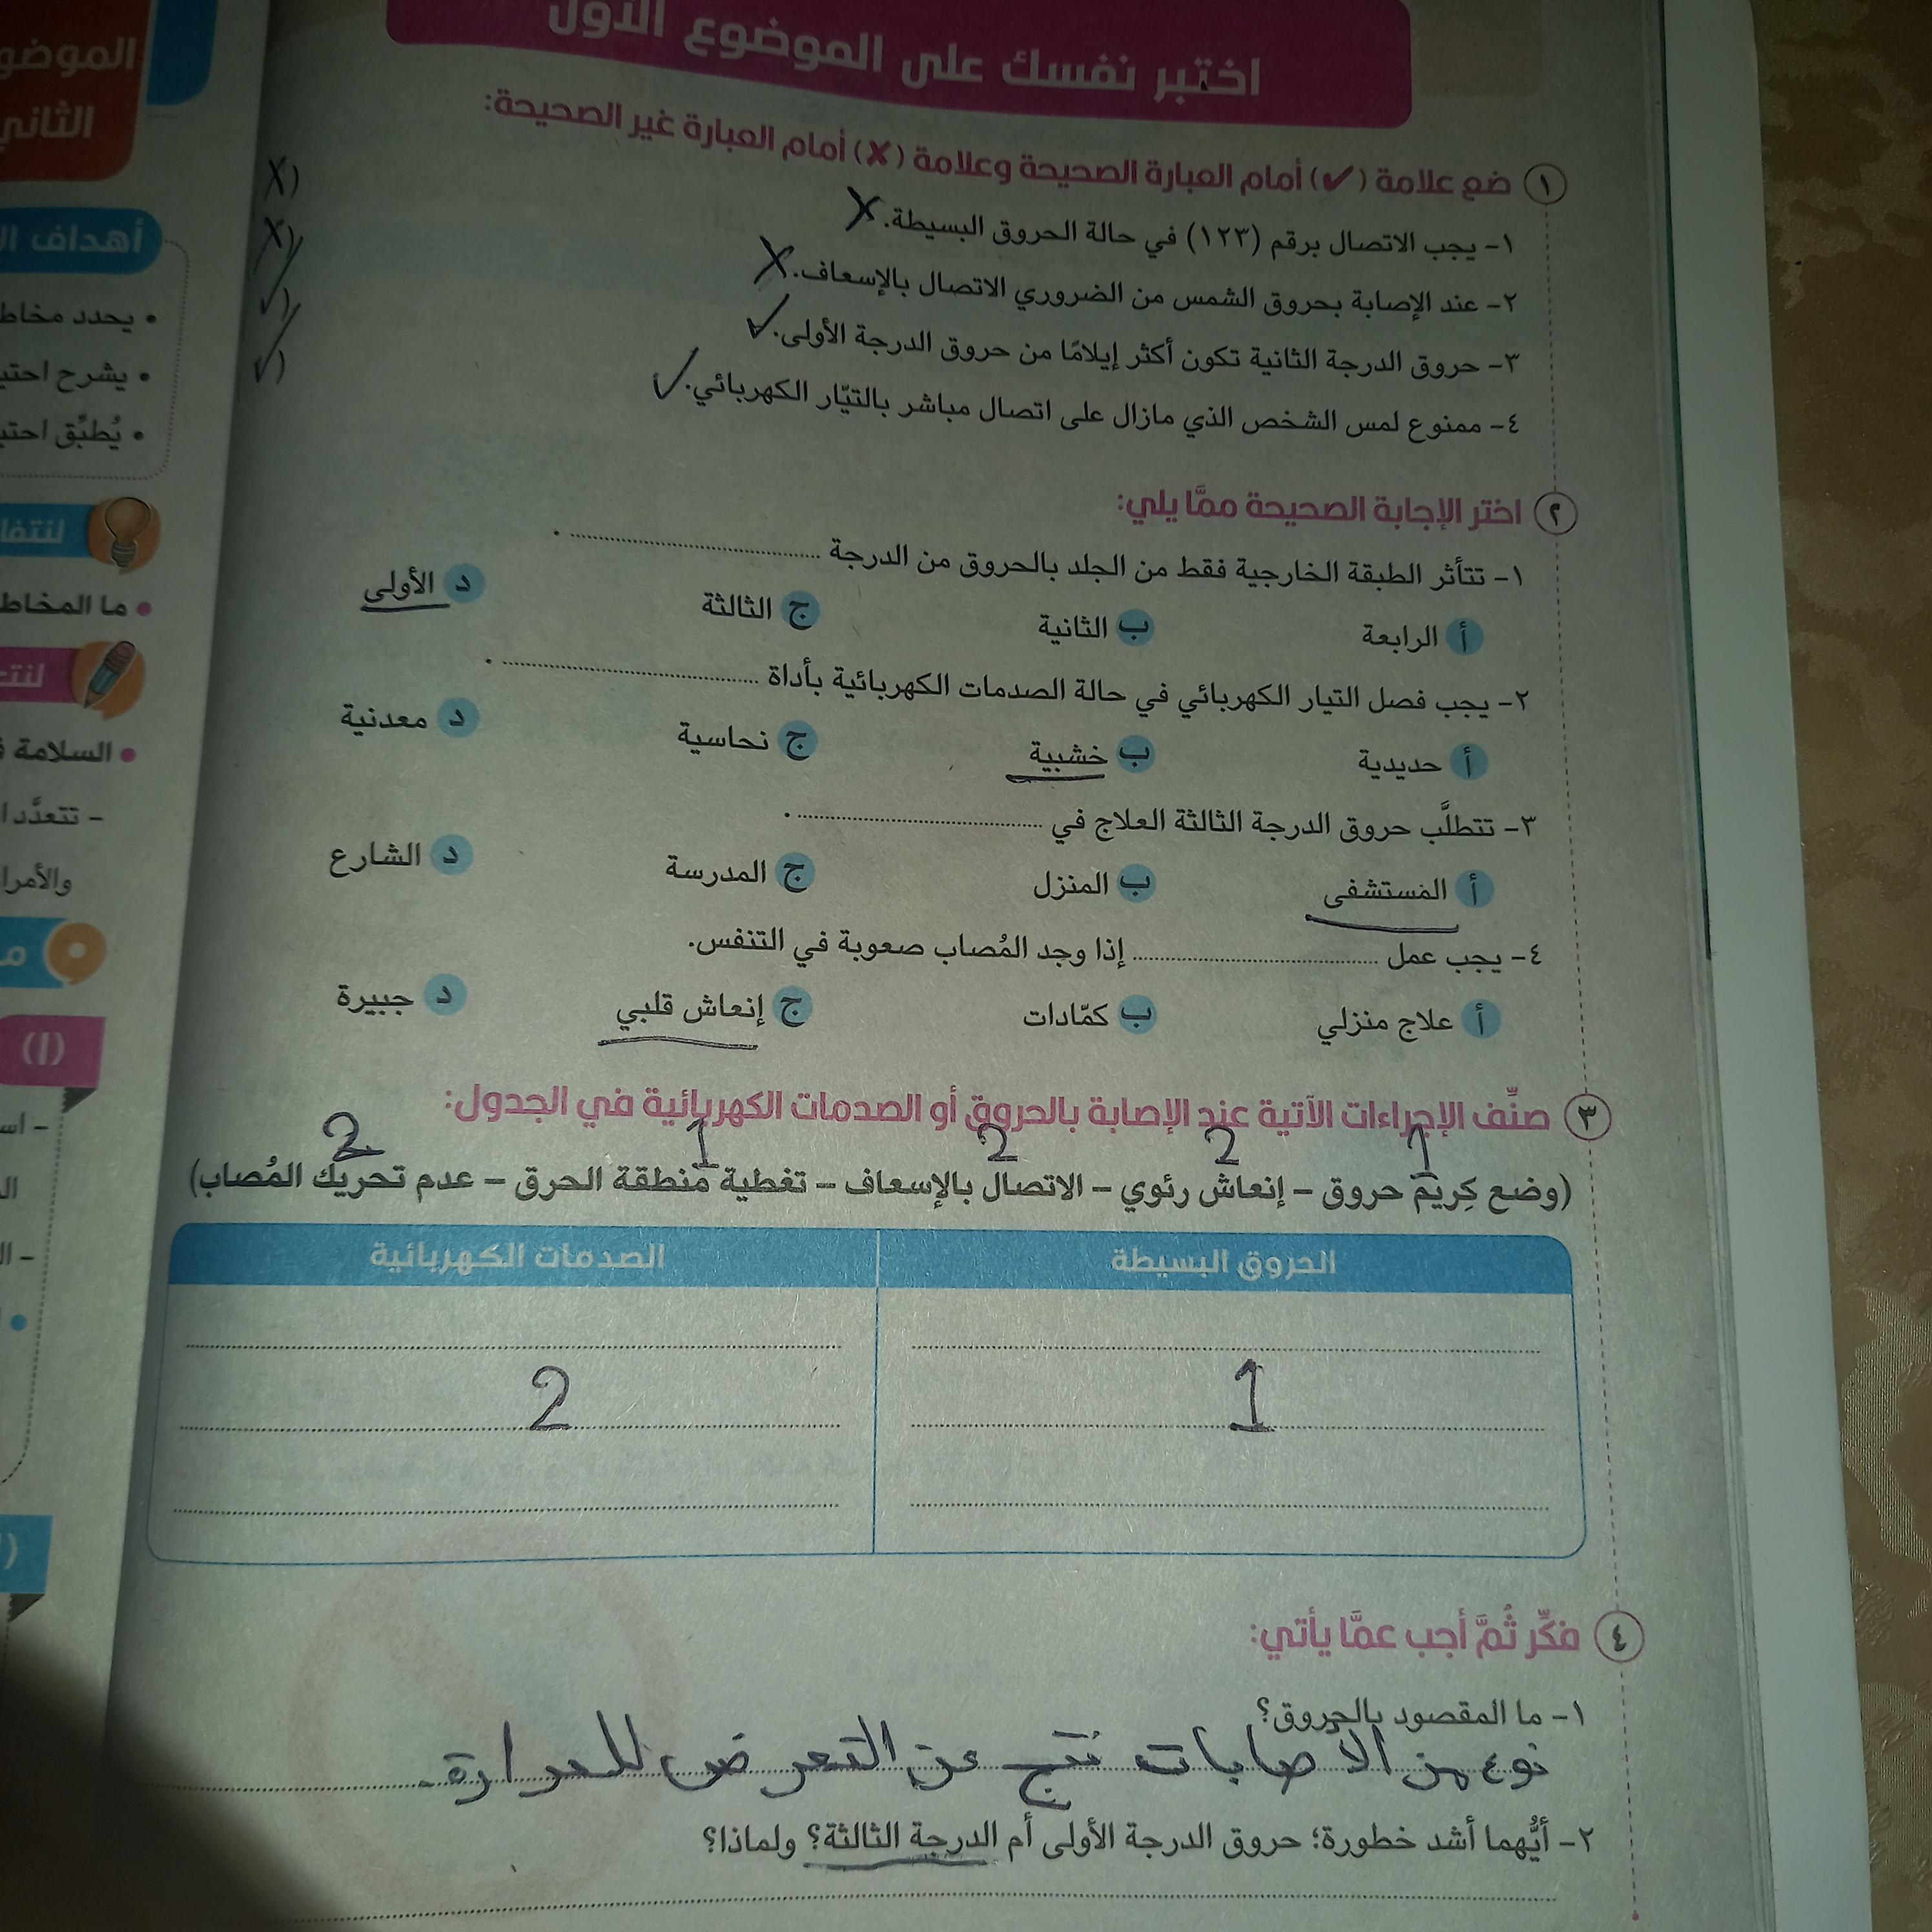 اختبر نفسك على الموضوع الأول
١ ضع علامة (✓) أمام العبارة الصحيحة وعلامة (✗) أمام العبارة غير الصحيحة:
١- يجب الاتصال برقم (١٢٣) في حالة الحروق البسيطة. X (X
٢- عند الإصابة بحروق الشمس من الضروري الاتصال بالإسعاف. X (X
٣- حروق الدرجة الثانية تكون أكثر إيلامًا من حروق الدرجة الأولى. ✓ (✓
٤- ممنوع لمس الشخص الذي مازال على اتصال مباشر بالتيّار الكهربائي. ✓ (✓
٢ اختر الإجابة الصحيحة ممَّا يلي:
١- تتأثر الطبقة الخارجية فقط من الجلد بالحروق من الدرجة ........................ .
أ الرابعة ب الثانية ج الثالثة د الأولى
٢- يجب فصل التيار الكهربائي في حالة الصدمات الكهربائية بأداة ........................ .
أ حديدية ب خشبية ج نحاسية د معدنية
٣- تتطلَّب حروق الدرجة الثالثة العلاج في ........................ .
أ المستشفى ب المنزل ج المدرسة د الشارع
٤- يجب عمل ........................ إذا وجد المُصاب صعوبة في التنفس.
أ علاج منزلي ب كمّادات ج إنعاش قلبي د جبيرة
٣ صنِّف الإجراءات الآتية عند الإصابة بالحروق أو الصدمات الكهربائية في الجدول:
1 2 2 1 2
(وضع كِريم حروق – إنعاش رئوي – الاتصال بالإسعاف – تغطية منطقة الحرق – عدم تحريك المُصاب)
الحروق البسيطة الصدمات الكهربائية
1 2
٤ فكِّر ثُمَّ أجب عمَّا يأتي:
١- ما المقصود بالحروق؟
نوع من الاصابات نتج عن التعرض للحرارة.
٢- أيُّهما أشد خطورة؛ حروق الدرجة الأولى أم الدرجة الثالثة؟ ولماذا؟
الثاني
• يحدد
• يشرح
• يُطبِّق
• ما
• السلامة
(١)